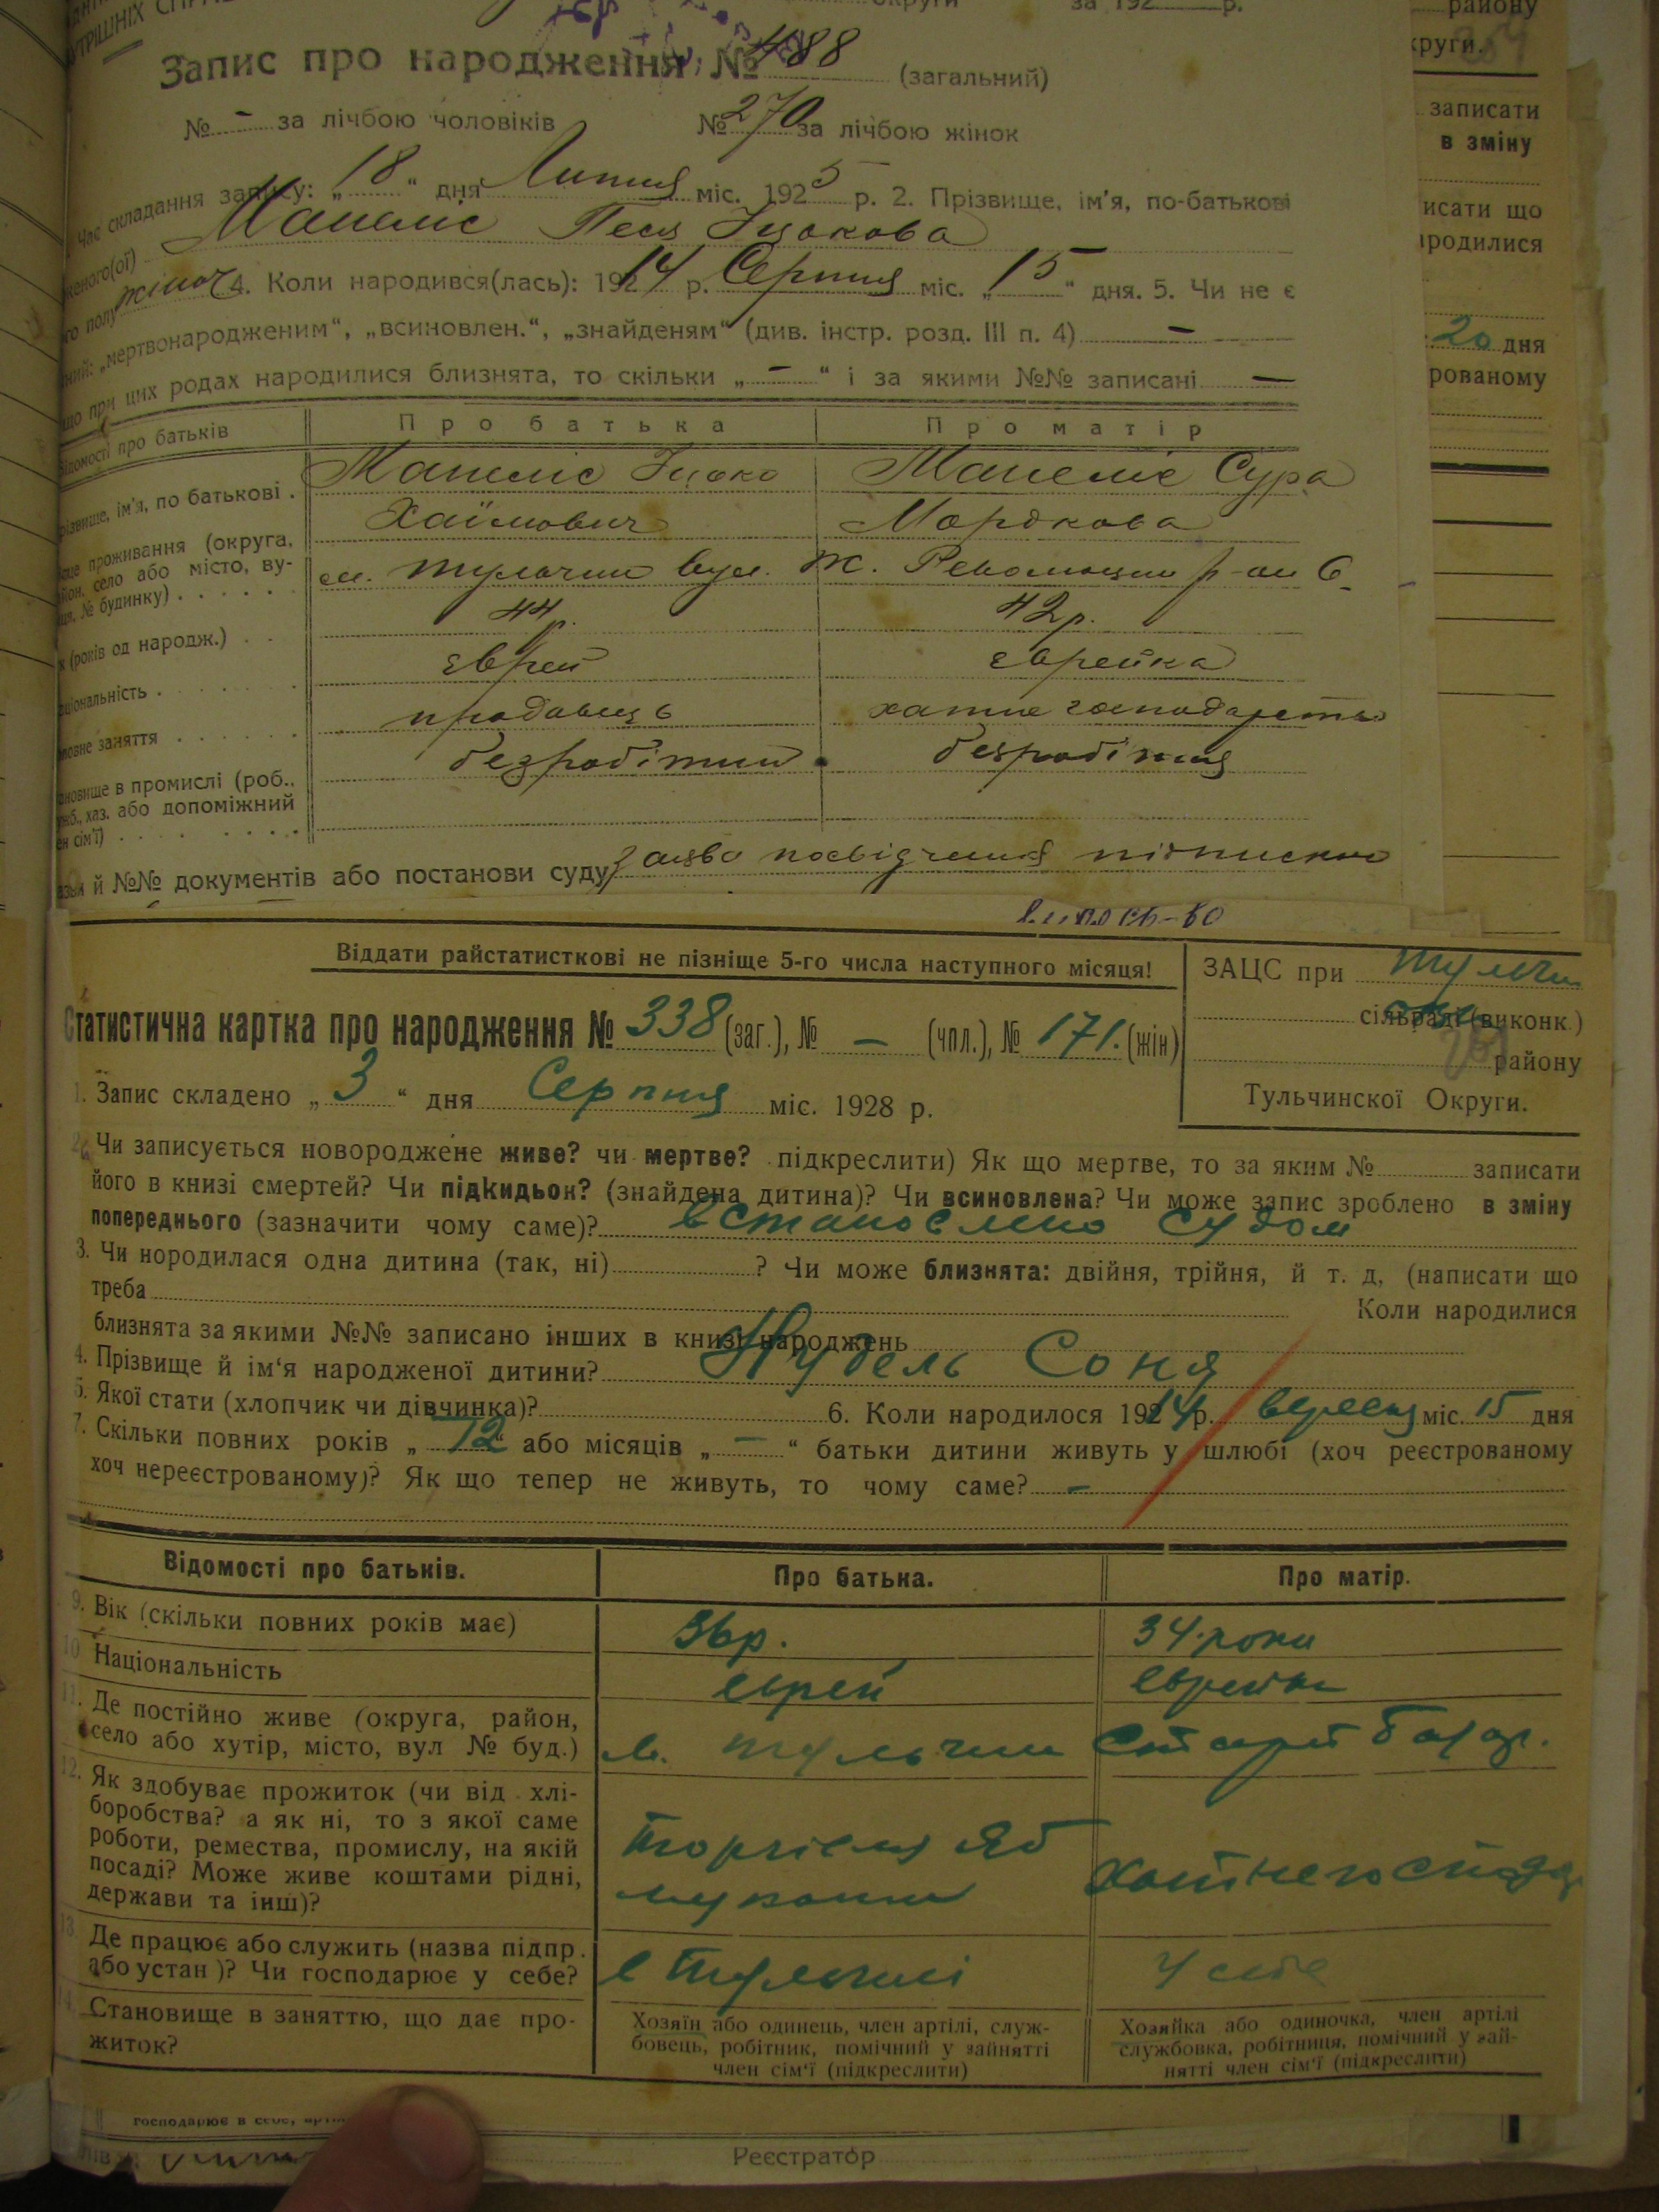 округи за 192 р.
Запис про народження № 488 (загальний)
№ - за лічбою чоловіків № 270 за лічбою жінок
Час складання запису: „18“ дня Липня міс. 1925 р. 2. Прізвище, ім'я, по-батькові
женого(ої) Манеліс Геся Іцкова
го полу жіноч 4. Коли народився(лась): 1914 р. Серпня міс. „15“ дня. 5. Чи не є
ний: „мертвонародженим“, „всиновлен.“, „знайденям“ (див. інстр. розд. III п. 4) —
що при цих родах народилися близнята, то скільки „-“ і за якими №№ записані —
відомості про батьків Про батька Про матір
різвище, ім'я, по батькові . Манеліс Іцко Манеліс Сура
Хаїмович Мордкова
проживання (округа,
село або місто, ву-
№ будинку) м. Тульчин вул. Ж. Революции
(років од народж.) 44р. 42р.
ціональність єврей єврейка
ловне заняття продавець хатнє господарство
ановище в промислі (роб.,
жб., хаз. або допоміжний
ен сім'ї) безробітний безробітня
й №№ документів або постанови суду заява посвідчення підпискою
Віддати райстатисткові не пізніще 5-го числа наступного місяця!
ЗАЦС при Тульчин
сільраді (виконк.)
району
Тульчинскої Округи.
Статистична картка про народження № 338 (заг.), № — (чпл.), № 171. (жін)
1. Запис складено „3“ дня Серпня міс. 1928 р.
Чи записується новороджене живе? чи мертве? підкреслити) Як що мертве, то за яким № записати
його в книзі смертей? Чи підкидьок? (знайдена дитина)? Чи всиновлена? Чи може запис зроблено в зміну
попереднього (зазначити чому саме)? встановлено судом
3. Чи нородилася одна дитина (так, ні) ? Чи може близнята: двійня, трійня, й т. д, (написати що
треба Коли народилися
близнята за якими №№ записано інших в книзі народжень
4. Прізвище й ім‘я народженої дитини? Нудель Соня
5. Якої стати (хлопчик чи дівчинка)? 6. Коли народилось 1914 р. вересня міс. 15 дня
7. Скільки повних років „12“ або місяців „—“ батьки дитини живуть у шлюбі (хоч реєстрованому
хоч нереєстрованому)? Як що тепер не живуть, то чому саме? —
Відомості про батьків. Про батька. Про матір.
9. Вік (скільки повних років має) 36р. 34 роки
10. Національність еврей еврейка
11. Де постійно живе (округа, район,
село або хутір, місто, вул № буд.) м. Тульчин Старий базар.
12. Як здобуває прожиток (чи від хлі-
боробства? а як ні, то з якої саме
роботи, ремества, промислу, на якій
посаді? Може живе коштами рідні,
держави та інш)? торгівля
13. Де працює або служить (назва підпр.
або устан)? Чи господарює у себе? в Тульчині У себе
14. Становище в заняттю, що дає про-
житок?
Хозяїн або одинець, член артілі, служ-
бовець, робітник, помічний у зайнятті
член сім‘ї (підкреслити)
Хозяйка або одиночка, член артілі
службовка, робітниця, помічний у зай-
нятті член сім‘ї (підкреслити)
господарює в себе,
Реєстратор
району
круги.
записати
в зміну
исати що
ародилися
20 дня
рованому